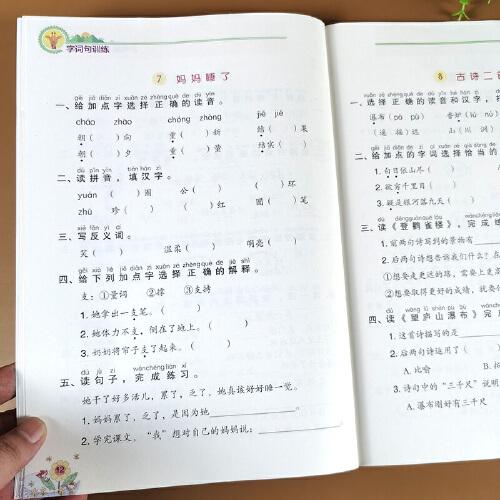 字词句训练
7 妈妈睡了
gěi jiā diǎn zì xuǎn zé zhèng què de dú yīn
一、给加点字选择正确的读音。
cháo zhāo chóng zhòng jiē jié
朝（ ）向 重（ ）新 结（ ）果
朝（ ）夕 重（ ）量 结实（ ）
dú pīn yīn tián hàn zì
二、读拼音，填汉字。
yuán （ ）闹 公（ ） （ ）环
zhū 珍（ ） （ ）红 圆（ ）笔
xiě fǎn yì cí
三、写反义词。
笑（ ） 温柔（ ） 明亮（ ）
gěi xià liè jiā diǎn zì xuǎn zé zhèng què de jiě shì
四、给下列加点字选择正确的解释。
支：①量词 ②撑 ③支持
1. 她拿出一支笔。（ ）
2. 她体力不支，倒在了地上。（ ）
3. 妈妈将帘子支了起来。（ ）
dú jù zi wánchéng liàn xí
五、读句子，完成练习。
她干了好多活儿，累了，乏了，她真该好好睡一觉。
1. 妈妈累了，乏了，是因为她
2. 学完课文，“我”想对自己的妈妈说：
12
8 古诗二首
一、选择正确的读音和汉字，
瀑布（ ） 香炉（
（遥 摇）远 山（川
二、给加点的字词选择恰当的
1. 白日依山尽（ ）
2. 欲穷千里目（ ）
3. 疑是银河落九天（ ）
三、读《登鹳雀楼》，完成练
1. 前两句诗写到的景物有
2. 后两句诗想告诉我们什么？在
①想要走更远的路，需要上更高
②想要取得更好的成绩，就要
四、读《望庐山瀑布》完
1. 这首诗描写的是
2. 后两句诗运用了（ ）
A. 比喻 B.
3. 诗句中的“三千尺”说明
A. 瀑布刚好有三千尺